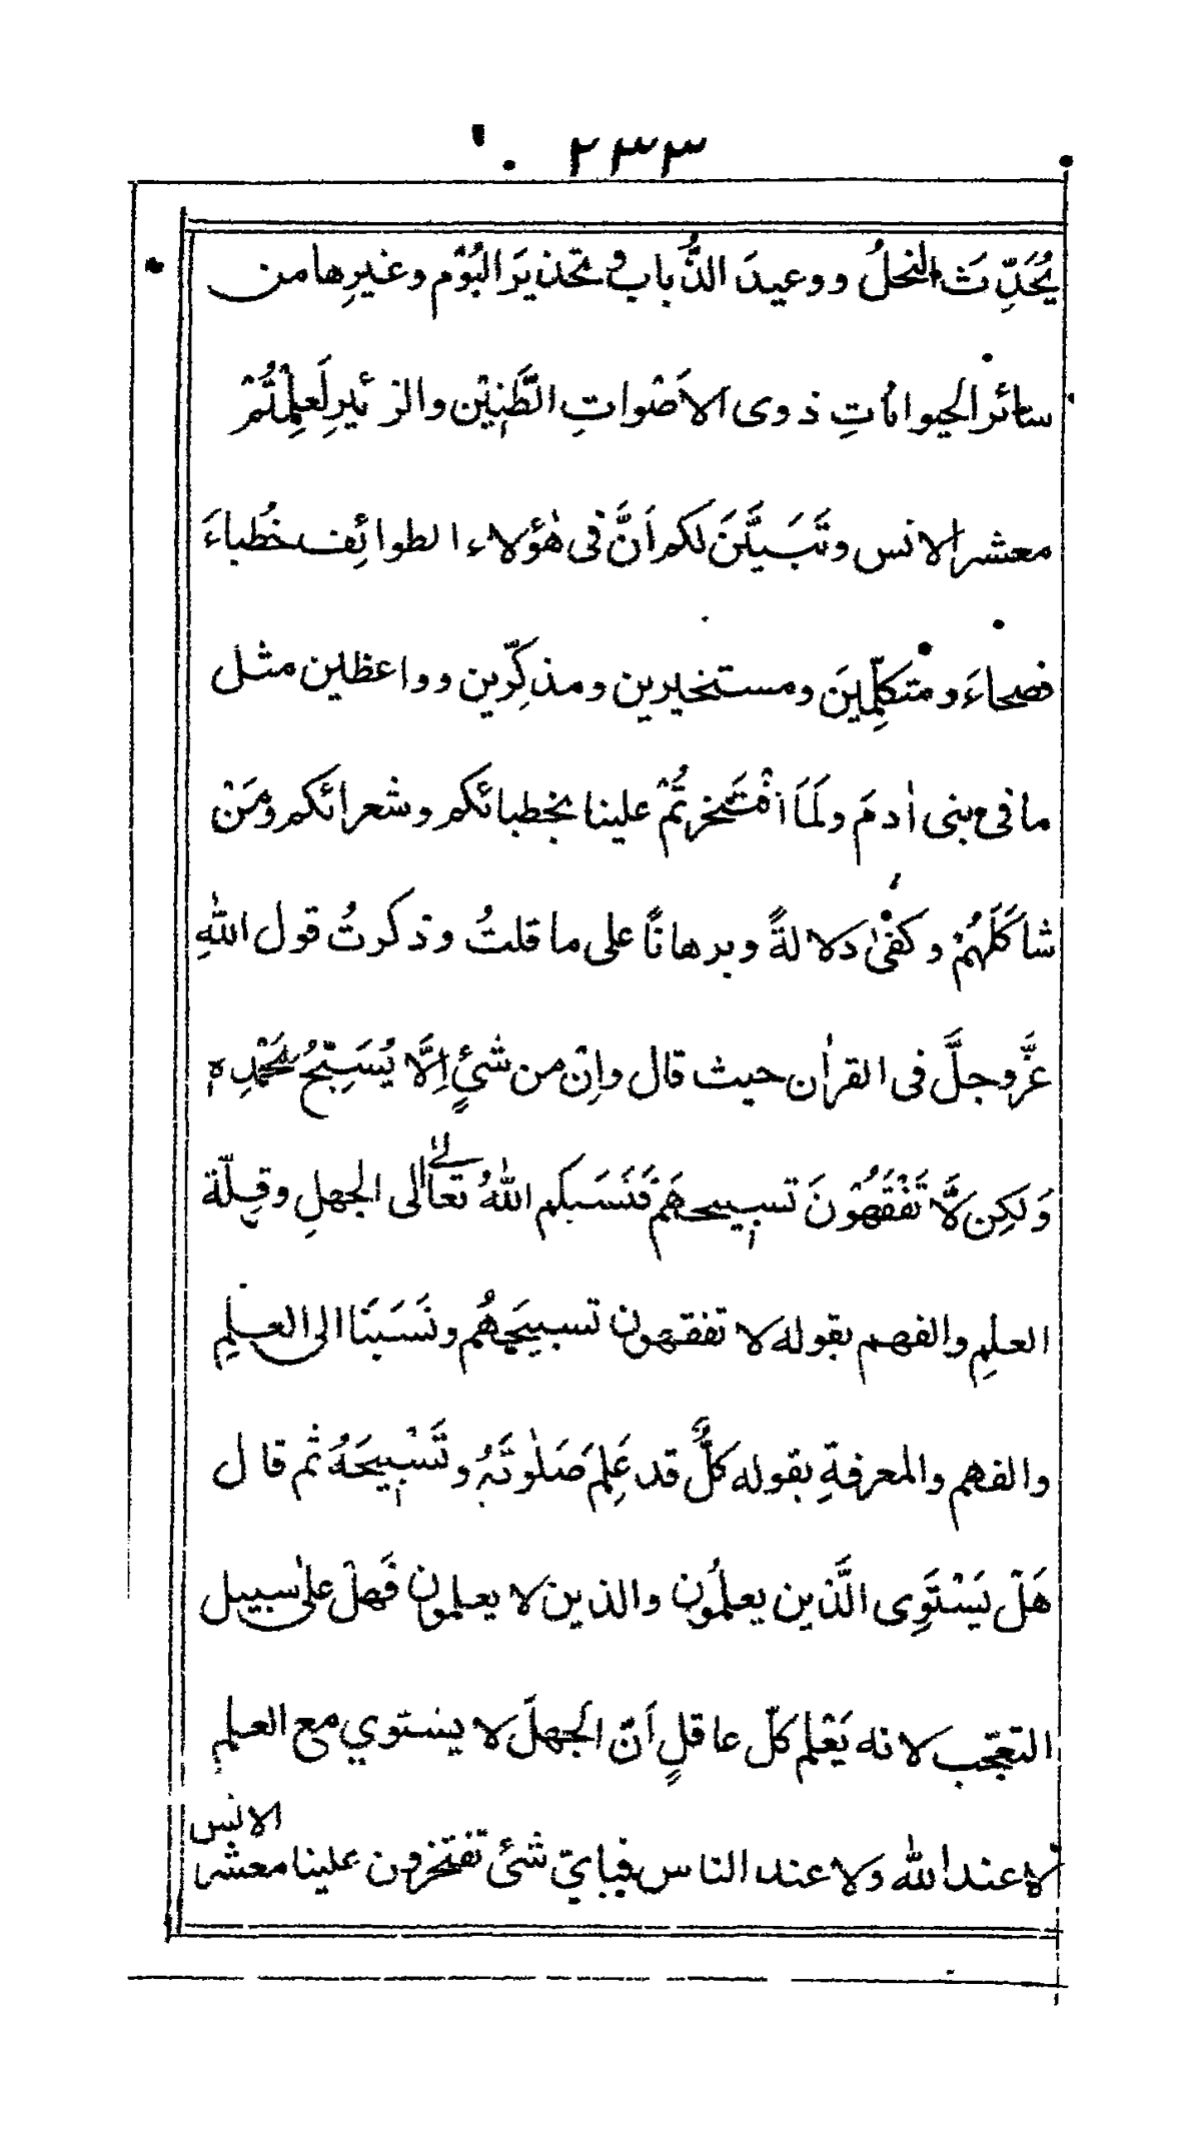 ٢٣٣
يُحَدِّثَ النحلُ ووعيدَ الذُّباب وتحذيرَ البُوْم وغيرِها من
سائر الحيواناتِ ذوى الاَصْواتِ الطَّنِيْن والزئيرِ لَعلِمْتُمْ
معشر الانس وتَبَيَّنَ لكم اَنَّ فى هٰؤلاء الطوائِف خُطباءَ
فصحاءَ ومتكلِّمينَ ومستخيرين ومذكِّرين وواعظين مثل
ما فى بنى اٰدمَ ولَمَا افْتَخرتُمْ علينا بخطبائكم وشعرائكم ومَنْ
شاكَلَهُمْ وكفٰى دلالةً وبرهانًا على ما قلتُ وذكرتُ قول اللهِ
عَزَّوجلَّ فى القراٰن حيث قال واِنْ من شئٍ اِلَّا يُسَبِّحُ بِحَمْدِه
وَلكِن لَّا تَفْقَهُوْنَ تسبيحهَم فَنَسَبكم اللهُ تعالٰى الى الجهلِ وقِلّة
العلمِ والفهم بقوله لا تفقهون تسبيحَهُم ونَسَبَنَا الى العلمِ
والفهم والمعرفةِ بقوله كلٌّ قد عَلِمَ صَلٰوتَهُ وتَسْبِيحَهُ ثم قال
هَلْ يَسْتَوِى الَّذين يعلمُون والذين لا يعلمون فَهلْ على سبيل
التعجّب لانه يَعْلم كلّ عاقلٍ اَنّ الجهلَ لا يستوي مع العلم
لا عند الله ولا عند الناس فباىّ شئ تفتخرون علينا معشر الانس